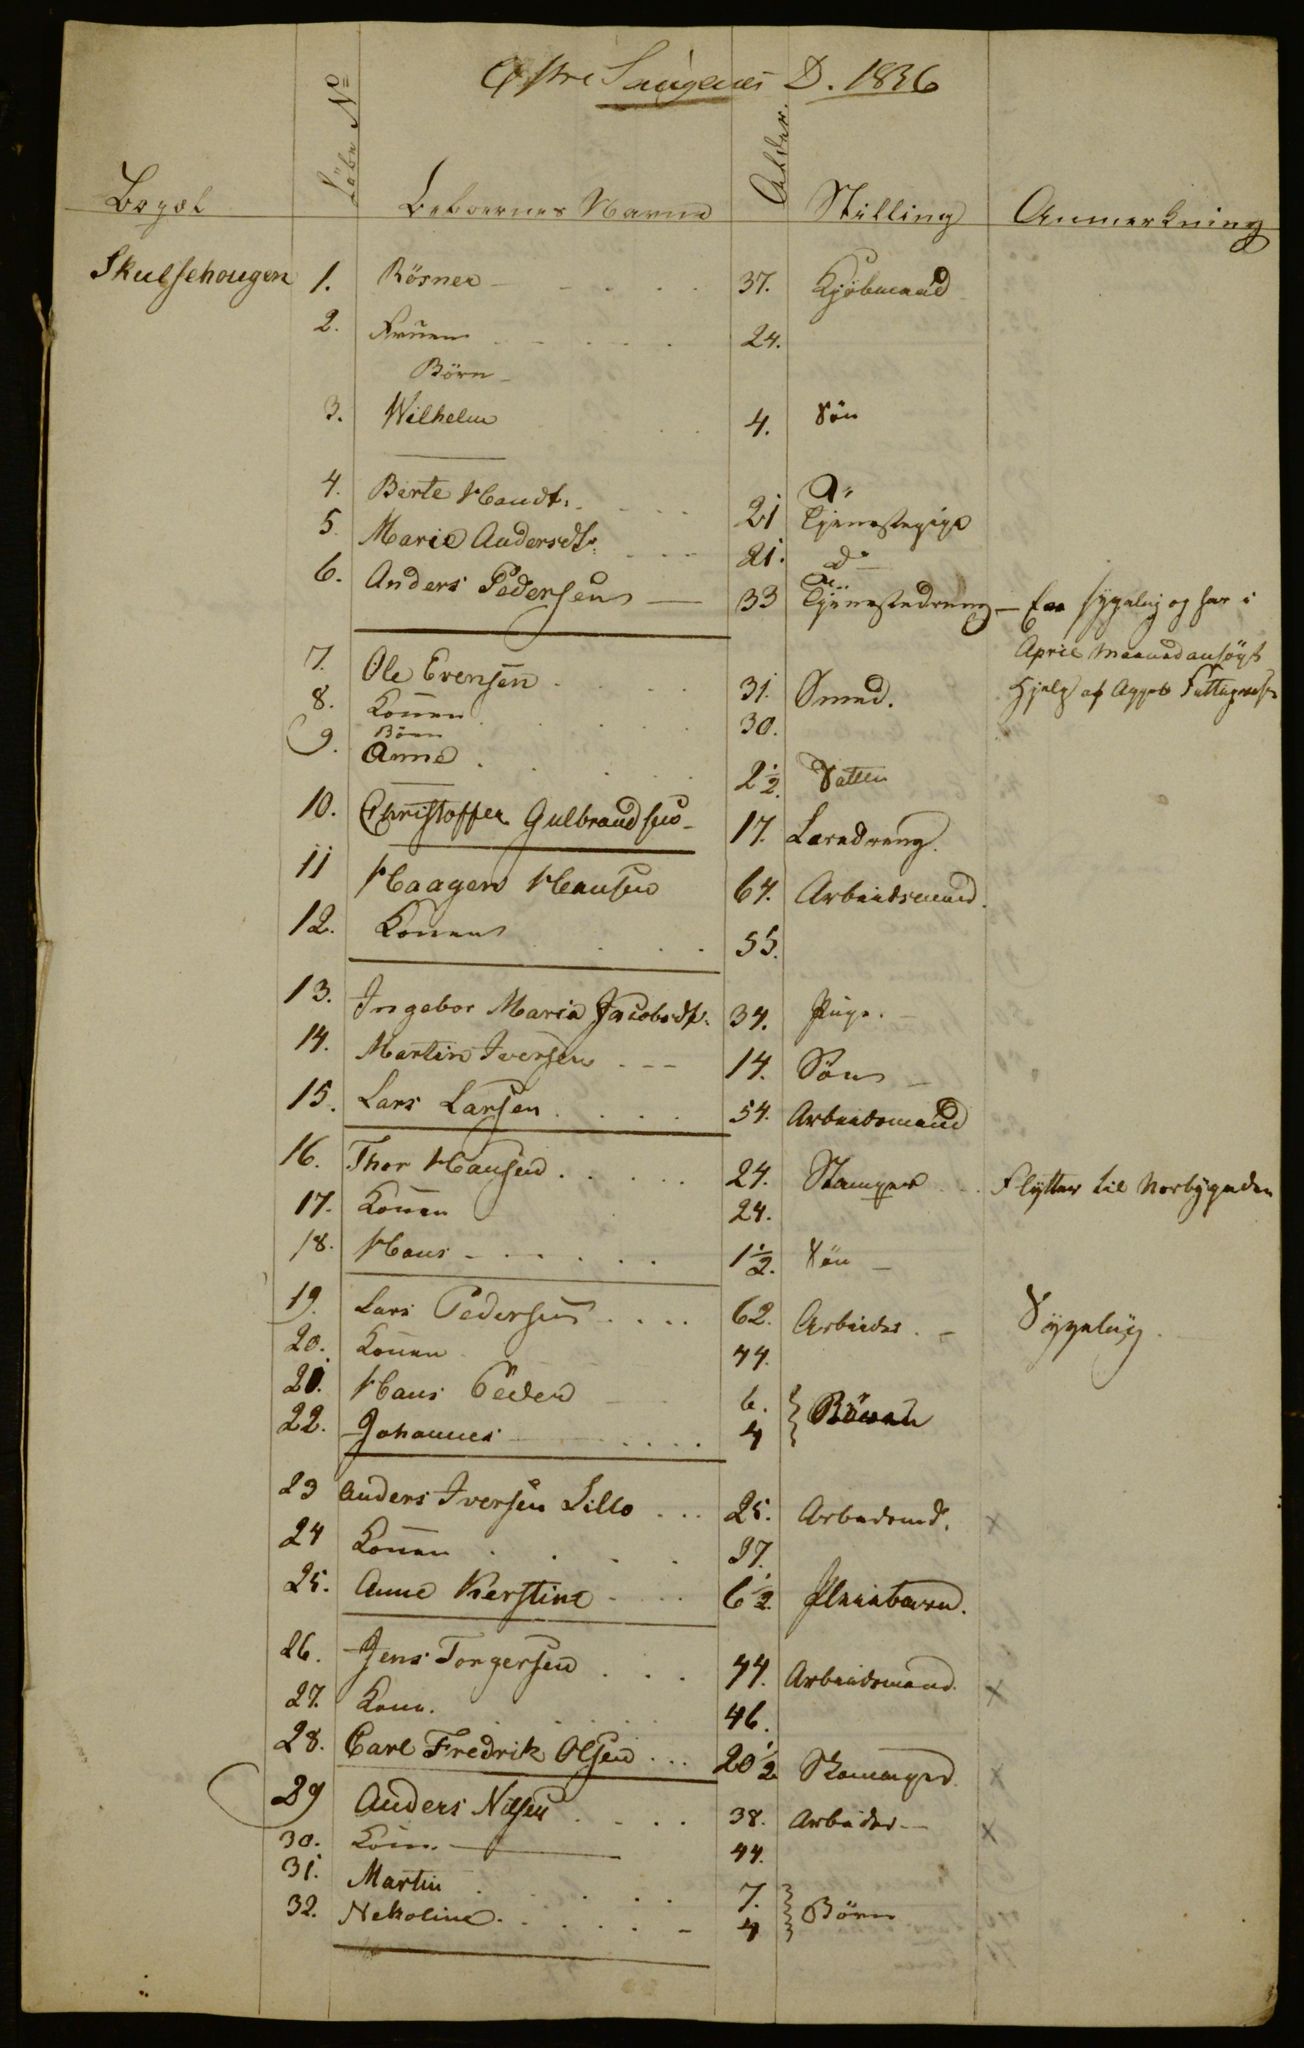 Østre Saugenes D. 1836
Bopæl Löbe No Beboernes Navne Alder. Stilling Anmerkning
Skulsehougen 1. Rösner 37. Kjöbmand
2. Fruen 24.
Börn
3. Wilhelm 4. Sön
4. Birte Handt. 21 Tjenestepige
5. Marie Andersdtr. 21. do
6. Anders Pedersen 33 Tjenestedreng Er sygelig og har i
April Maaned ansögt
7. Ole Evensen 31. Smed. Hjelp af Aggers Fattigvæsen
8. Konen 30.
Börn
9. Anne 2½. Datter
10. Christoffer Gulbrandsen 17. Læredreng.
11 Haagen Hansen 67. Arbeidsmand.
12. Konen 55.
13. Ingebor Maria Jacobsdtr. 34. Pige.
14. Martin Iversen 14. Sön
15. Lars Larsen 54. Arbeidsmand
16. Thor Hansen 24. Stamper Flytter til Norbygaden
17. Konen 24.
18. Hans 1½. Sön
19. Lars Pedersen 62. Arbeider. Sygelig.
20. Konen 44.
21. Hans Peder 6. } Börn
22. Johannes 4
23 Anders Iversen Lillo 25. Arbedsmd. x
24 Konen 37.
25. Anne Kerstine 6½ Pleiebarn.
26. Jens Torgersen 44. Arbeidsmand. x
27. Kone. 46.
28. Carl Fredrik Olsen 20½ Skomager. x
29 Anders Nilsen 38. Arbeider x
30. Kone. 44.
31. Martin 7. } Börn
32. Nekoline. 4